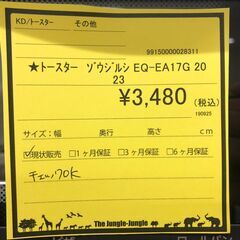 KD/トースター　その他
99150000028311
★トースター　ゾウジルシ EQ-EA17G 20
23
￥3,480 (税込)
190925
サイズ：幅　奥行　高さ　cm
☑現状販売　□1ヶ月保証　□3ヶ月保証　□6ヶ月保証
チェック OK
The Jungle-Jungle